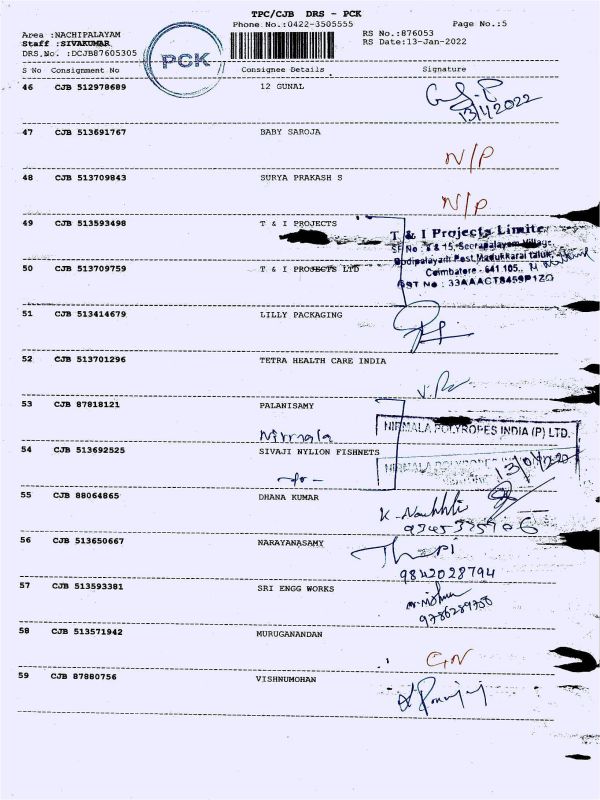 TPC/CJB DRS - PCK
Phone No.:0422-3505555
Page No.:5
Area :NACHIPALAYAM
Staff :SIVAKUMAR
DRS.No. :DCJB87605305
PCK
RS No.:876053
RS Date:13-Jan-2022
S No Consignment No Consignee Details Signature
46 CJB 512978689 12 GUNAL
13/1/2022
47 CJB 513691767 BABY SAROJA
N/P
48 CJB 513709843 SURYA PRAKASH S
N/P
49 CJB 513593498 T & I PROJECTS
T & I Projects Limite
SF No : & 15, Seerapalayam Village
Bodipalayam Post Madukkarai taluk
Coimbatore - 641 105.
GST No : 33AAACT8459P1ZO
50 CJB 513709759 T & I PROJECTS LTD
51 CJB 513414679 LILLY PACKAGING
52 CJB 513701296 TETRA HEALTH CARE INDIA
53 CJB 87818121 PALANISAMY
NIRMALA POLYROPES INDIA (P) LTD.
Nirmala
54 CJB 513692525 SIVAJI NYLION FISHNETS
NIRMALA POLYROPES IN
-do-
55 CJB 88064865 DHANA KUMAR
56 CJB 513650667 NARAYANASAMY
9842028794
57 CJB 513593381 SRI ENGG WORKS
9786289758
58 CJB 513571942 MURUGANANDAN
GN
59 CJB 87880756 VISHNUMOHAN